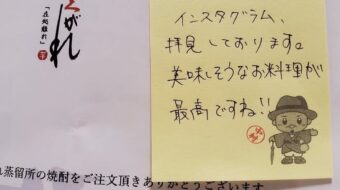 がれ
「在処離れ」
インスタグラム、
拝見しております。
美味しそうなお料理が
最高ですね!!
れ蒸留所の焼酎をご注文頂きありがとうございます。